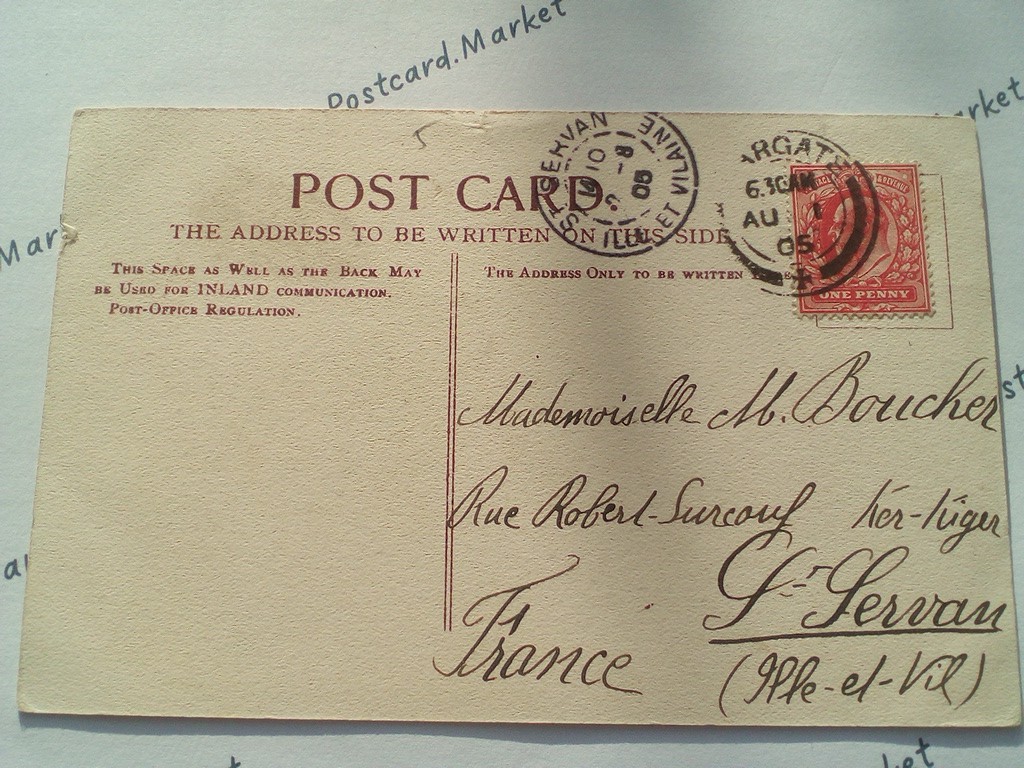 Postcard.Market
5
ST SERVAN
ILLE ET VILAINE
8
05
ARGATE
6.30AM
AU 1
05
POSTAGE & REVENUE
ONE PENNY
POST CARD.
THE ADDRESS TO BE WRITTEN ON THIS SIDE
THIS SPACE AS WELL AS THE BACK MAY
BE USED FOR INLAND COMMUNICATION.
POST-OFFICE REGULATION.
THE ADDRESS ONLY TO BE WRITTEN
Mademoiselle M. Boucher
Rue Robert-Surcouf Ker-
St Servan
(Ille-et-Vil)
France